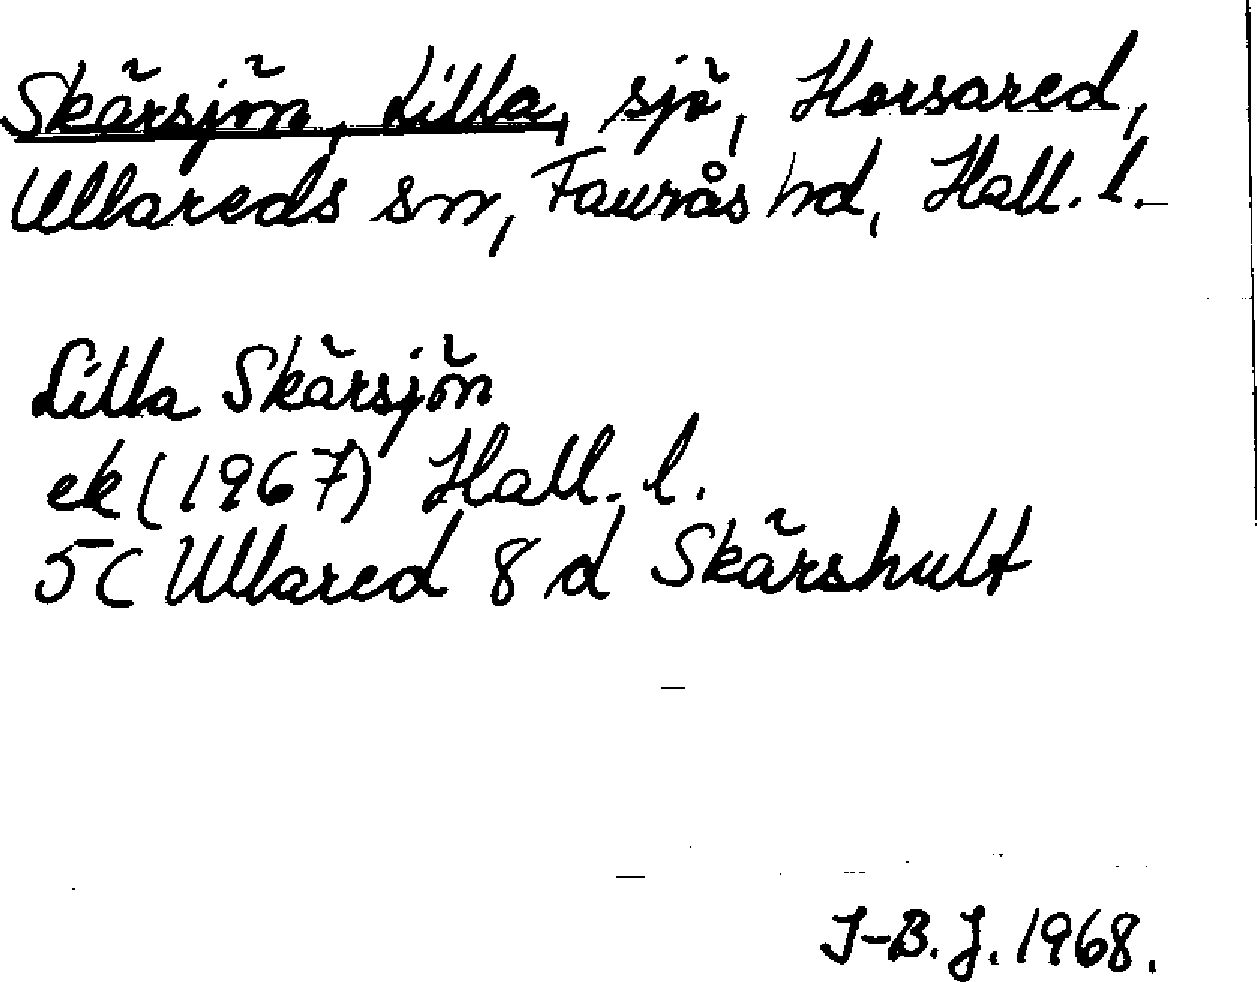 Skärsjön, Lilla, sjö, Horsared,
Ullareds sn, Faurås hd, Hall. l.
Lilla Skärsjön
ek (1967) Hall. l.
5C Ullared 8 d Skärshult
J-B. J. 1968.